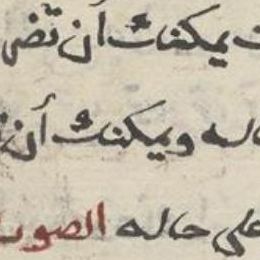 يمكنك أن تضى
حاله ويمكنك أن
على حاله الصور